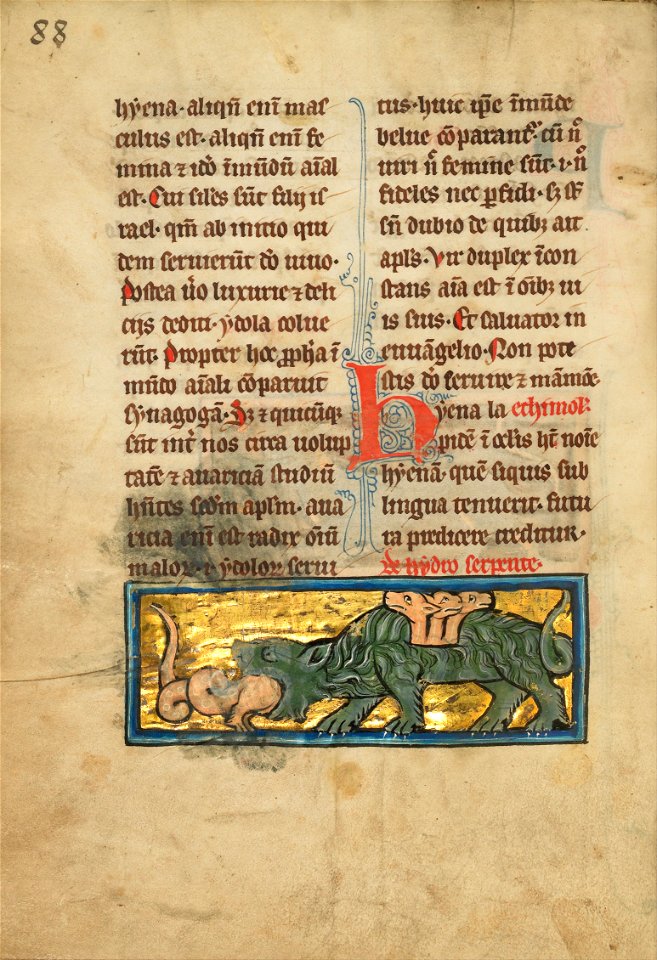 88
hyena· aliqn̄ enī mas
culus est· aliqn̄ enī fe
mina ⁊ idō īmūdū aīal
est· Cui siłes sūt filij is
rael· qm̄ ab initio qui
dem seruierūt dō uiuo·
Postea ù̊o luxurie ⁊ deli
cijs dediti· ydola colue
rūt· Propter hoc ꝓpha ī
mūdo aīali ꝯparuit
synagogā· Sꝫ ⁊ quicūqꝫ
sūt int̄ nos circa uolup
tatē ⁊ auariciā studiū
hn̄tes scdm̄ apłm· aua
ricia enī est radix om̄iū
maloꝝ· ⁊ ydoloꝝ serui
tus· huic ip̄e īmūde
belue ꝯparant᷑· cū n̄
uiri n̄ femine sūt· i· n̄
fideles nec ꝑfidi· sꝫ st̄
sn̄ dubio de quibꝫ ait
apłs· Vir duplex īcon
stans aīa est ī oībꝫ ui
is suis· Et saluator in
euuāngelio· Non pote
stis dō seruire ⁊ māmōe·
hyena la echimoł
pidē ī oclis hn̄t noīe
hyēnā· quē siquis sub
lingua tenuerit· futu
ra predicere creditur·
de hydro serpente·